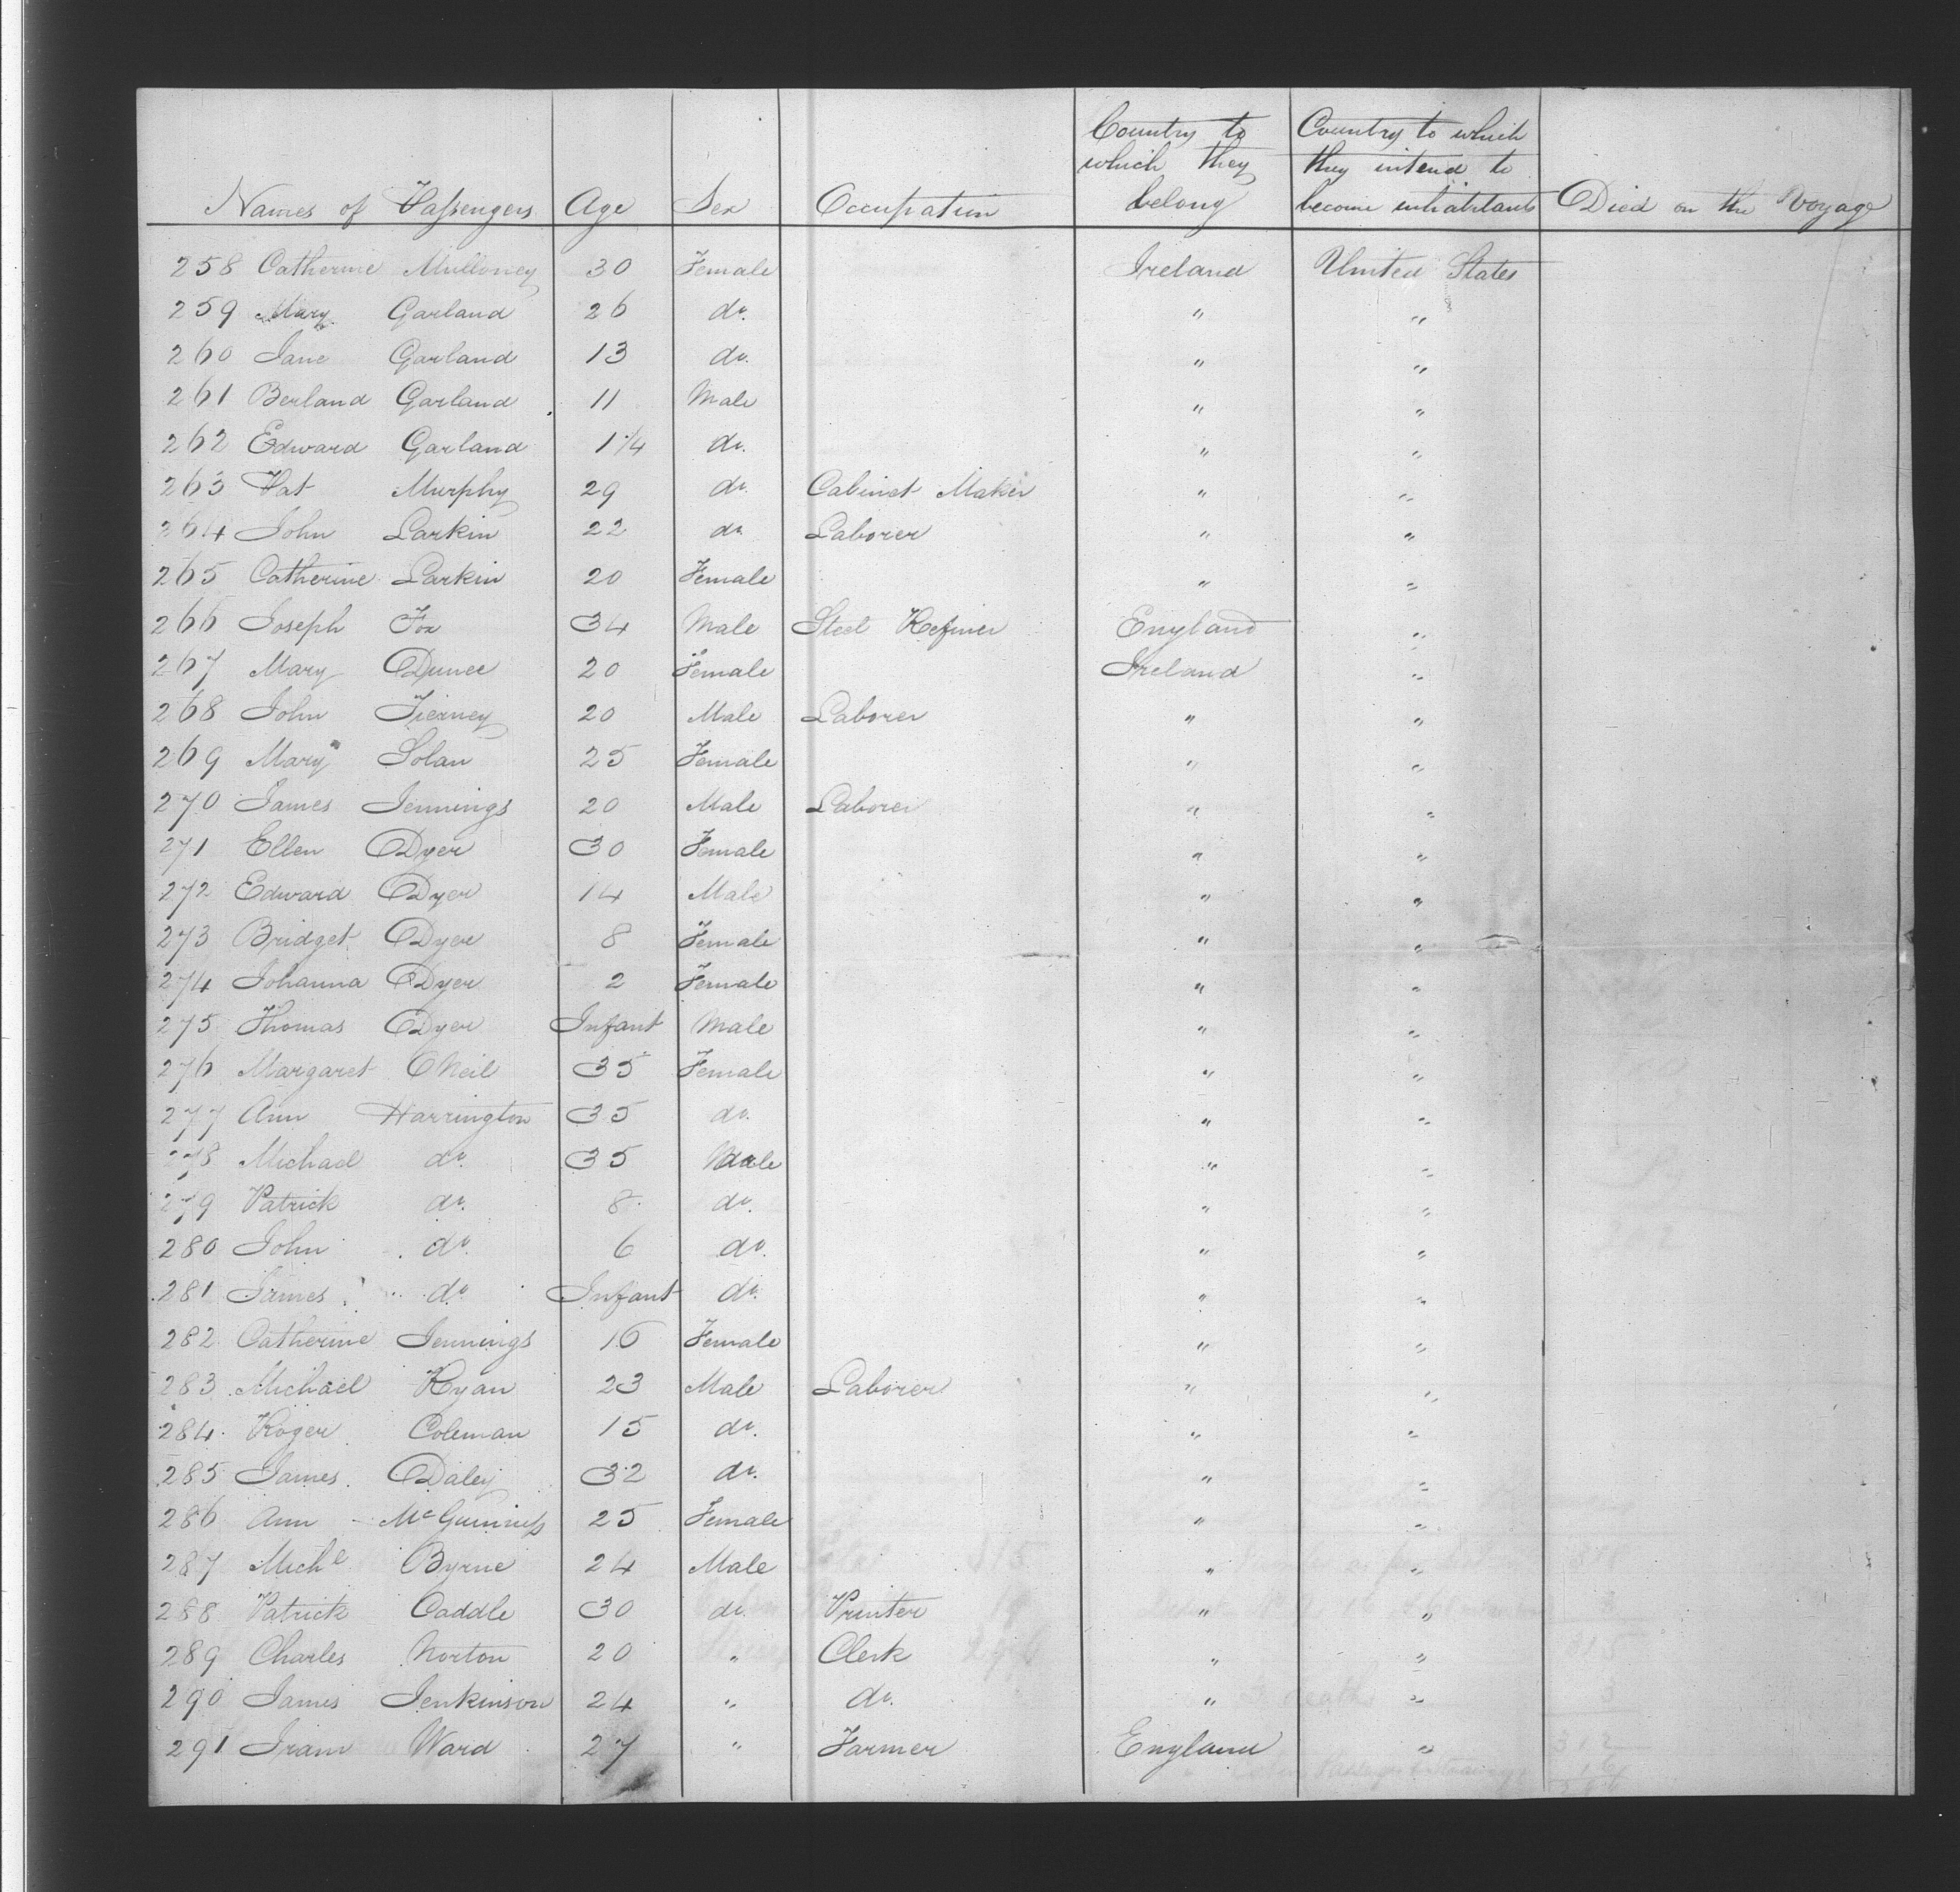 Names of Passengers Age Sex Occupation Country to which they belong Country to which they intend to become inhabitants Died on the Voyage
258 Catherine Mulloney 30 Female Ireland United States
259 Mary Garland 26 do. " "
260 Jane Garland 13 do. " "
261 Berland Garland 11 Male " "
262 Edward Garland 1 1/4 do. " "
263 Pat Murphy 29 do. Cabinet Maker " "
264 John Larkin 22 do. Laborer " "
265 Catherine Larkin 20 Female " "
266 Joseph Fox 34 Male Steel Refiner England "
267 Mary 20 Female Ireland "
268 John Tierney 20 Male Laborer " "
269 Mary Solan 25 Female " "
270 James Jennings 20 Male Laborer " "
271 Ellen Dyer 30 Female " "
272 Edward Dyer 14 Male " "
273 Bridget Dyer 8 Female " "
274 Johanna Dyer 2 Female " "
275 Thomas Dyer Infant Male " "
276 Margaret ONeil 35 Female " "
277 Ann Harrington 35 do. " "
278 Michael do. 35 Male " "
279 Patrick do. 8 do. " "
280 John do. 6 do. " "
281 James do. Infant do. " "
282 Catherine Jennings 16 Female " "
283 Michael Ryan 23 Male Laborer " "
284 Roger Coleman 15 do. " "
285 James Daley 32 do. " "
286 Ann McGuinness 25 Female " "
287 Michl Byrne 24 Male " "
288 Patrick Caddle 30 do. Printer " "
289 Charles Norton 20 " Clerk " "
290 James Jenkinson 24 " do. " "
291 Ward 27 " Farmer England "